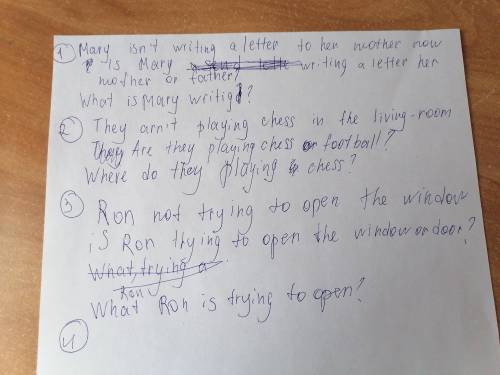 1 Mary isn't writing a letter to her mother now
is Mary writing a letter her
mother or father?
What is Mary writig?
2 They arn't playing chess in the living-room
Are they playing chess or football?
Where do they playing chess?
3 Ron not trying to open the window
is Ron trying to open the window or door?
What, trying a
Ron
What Ron is trying to open?
4